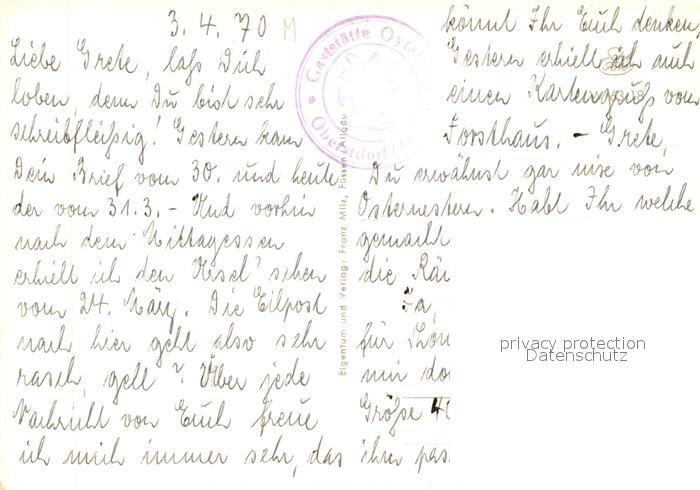 3. 4. 70 M
Liebe Grete, laß Dich
loben, denn Du bist sehr
schreibfleißig! Gestern kam
Dein Brief vom 30. und heute
der vom 31.3. – Und vorhin
nach dem Mittagessen
erhielt ich den
vom 24. März. Die Eilpost
nach hier geht also sehr
rasch, gell? Über jede
Nachricht von Euch freue
ich mich immer sehr, das
könnt Ihr Euch denken,
Gestern erhielt ich auch
einen Kartengruß vom
Forsthaus. – Grete,
Du erwähnst gar nix von
Osternestern. Habt Ihr welche
gemacht
die
Ja,
für
mir
Größe
ihm
* Gaststätte Oytal
Oberstdorf/A
Eigentum und Verlag: Franz Milz, Füssen, Allgäu
privacy protection
Datenschutz